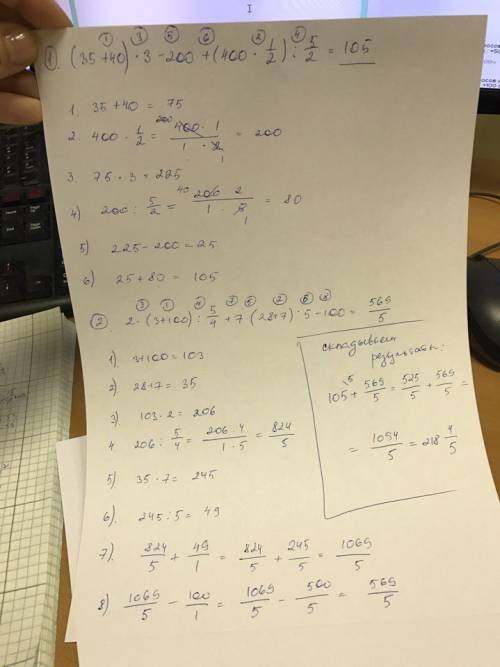 ① ③ ⑤ ⑥ ② ④
①. (35+40) · 3 - 200 + (400 · 1/2) : 5/2 = 105
1. 35+40 = 75
2. 400 · 1/2 = 200 400 · 1 / 1 · 2 1 = 200
3. 75 · 3 = 225
4) 200 : 5/2 = 40 200 · 2 / 1 · 5 1 = 80
5) 225 - 200 = 25
6) 25 + 80 = 105
③ ① ④ ⑦ ⑤ ② ⑥ ⑧
②. 2 · (3+100) : 5/4 + 7 (28+7) : 5 - 100 = 569/5
1) 3+100 = 103
2) 28+7 = 35
3) 103 · 2 = 206
4 206 : 5/4 = 206 · 4 / 1 · 5 = 824/5
5) 35 · 7 = 245
6) 245 : 5 = 49
7) 824/5 + 49/1 = 824/5 + 245/5 = 1069/5
8) 1069/5 - 100/1 = 1069/5 - 500/5 = 569/5
складываем
результаты:
105 \5 + 569/5 = 525/5 + 569/5 =
= 1094/5 = 218 4/5